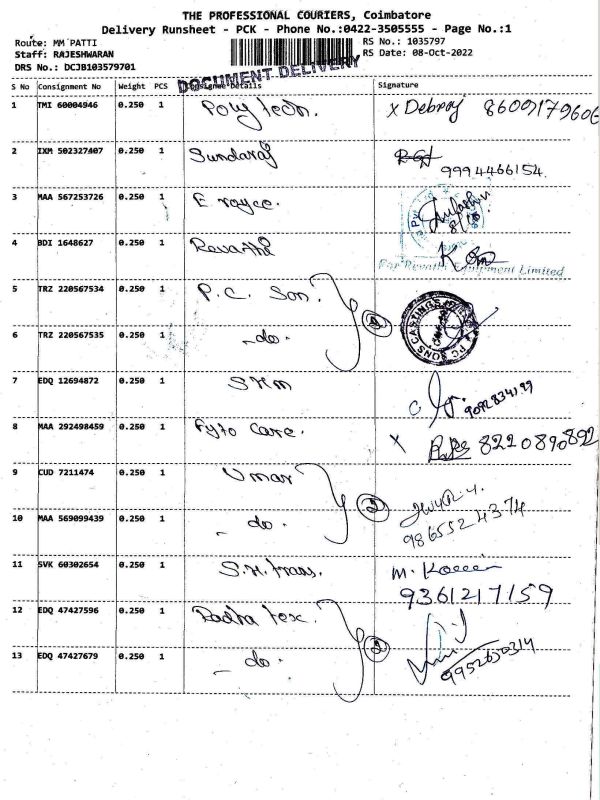 THE PROFESSIONAL COURIERS, Coimbatore
Delivery Runsheet - PCK - Phone No.:0422-3505555 - Page No.:1
Route: MM PATTI
RS No.: 1035797
Staff: RAJESHWARAN
RS Date: 08-Oct-2022
DRS No.: DCJB103579701
DOCUMENT DELIVERY
S No Consignment No Weight PCS Consignee Details Signature
1 TMI 60004946 0.250 1 Polytech. x Debraj 8609179606
2 IXM 502327407 0.250 1 Sundaraj 9994466154
3 MAA 567253726 0.250 1 E royce.
4 BDI 1648627 0.250 1 Revathi K
For Revathi Equipment Limited
5 TRZ 220567534 0.250 1 P.C. Son.
6 TRZ 220567535 0.250 1 - do. PC SONS CASTINGS
7 EDQ 12694872 0.250 1 SKM 9092834199
8 MAA 292498459 0.250 1 Fyto Care. x 8220890892
9 CUD 7211474 0.250 1 Umar
2
10 MAA 569099439 0.250 1 - do. 9865524374
11 SVK 60302654 0.250 1 S.K. trass. M.
9361217159
12 EDQ 47427596 0.250 1 Radha tex.
2
13 EDQ 47427679 0.250 1 - do. 9952650314